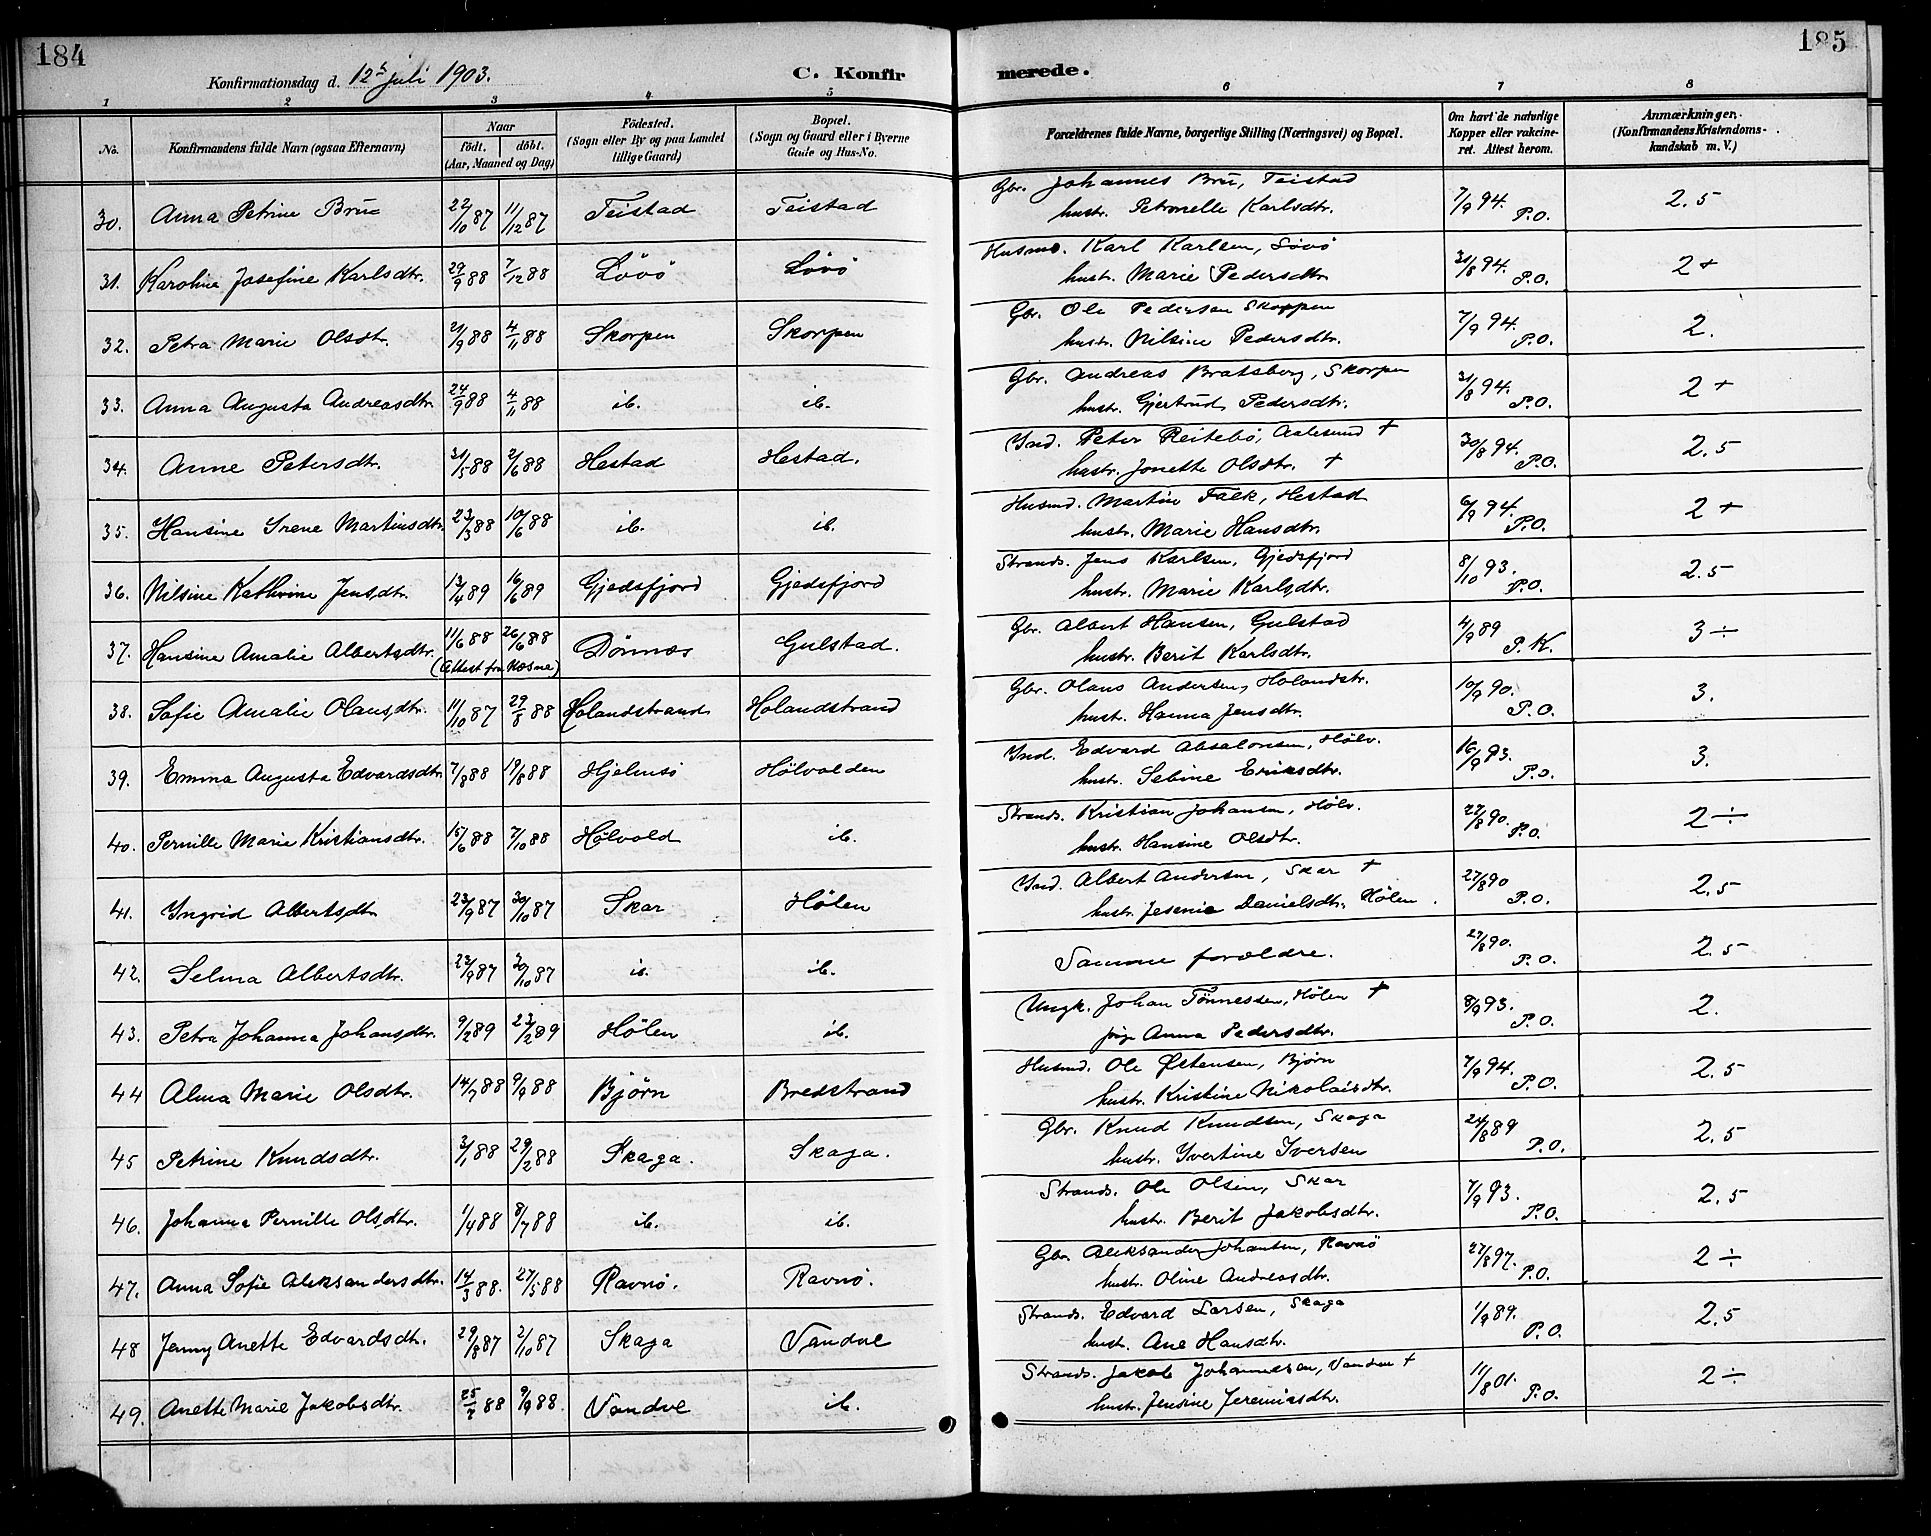 184
185
Konfirmationsdag d. 12te juli 1903.
C. Konfir
merede.
1 2 3 4 5 6 7 8
No.
Konfirmandens fulde Navn (ogsaa Efternavn)
Naar
födt. döbt.
(Aar, Maaned og Dag)
Födested.
(Sogn eller By og paa Landet
tillige Gaard)
Bopæl.
(Sogn og Gaard eller i Byerne
Gade og Hus-No.
Forældrenes fulde Navne, borgerlige Stilling (Næringsvei) og Bopæl.
Om havt de naturlige
Kopper eller vakcine-
ret. Attest herom.
Anmærkninger.
(Konfirmandens Kristendoms-
kundskab m. V.)
30. Anna Petrine Bru 22/10 87 11/12 87 Teistad Teistad Gbr. Johannes Bru, Teistad 7/9 94. P.O. 2.5
hustr. Petronelle Karlsdtr.
31. Karoline Josefine Karlsdtr. 29/9 88 7/12 88 Lövö Lövö Husmd. Karl Karlsen, Lövö 31/8 94. P.O. 2+
hustr. Marie Pedersdtr.
32. Petra Marie Olsdtr. 21/9 88 4/11 88 Skorpen Skorpen Gbr. Ole Pedersen Skorpen 7/9 94. P.O. 2.
hustr. Nilsine Pedersdtr.
33. Anna Augusta Andreasdtr. 24/9 88 4/11 88 ib. ib. Gbr. Andreas Bratsberg, Skorpen 31/8 94. P.O. 2+
hustr. Gjertrud Pedersdtr.
34. Anne Petersdtr. 31/5 88 2/6 88 Hestad Hestad. Ind. Peter Reitebö, Aalesund + 30/8 94. P.O. 2.5
hustr. Jonette Olsdtr. +
35. Hansine Irene Martinsdtr. 23/3 88 10/6 88 ib. ib. Husmd. Martin Falk, Hestad 6/9 94. P.O. 2+
hustr. Marie Hansdtr.
36. Nilsine Kathrine Jensdtr. 13/4 89 16/6 89 Gjedsfjord Gjedsfjord Strands. Jens Karlsen, Gjedsfjord 8/10 93. P.O. 2.5
hustr. Marie Karlsdtr.
37. Hansine Amalie Albertsdtr. 11/6 88 26/6 88 Dönnæs Gulstad. Gbr. Albert Hansen, Gulstad 4/9 89 P.K. 3÷
(Attest fra Næsne) hustr. Berit Karlsdtr.
38. Sofie Amalie Olausdtr. 11/10 87 29/8 88 Holandstrand Holandstrand Gbr. Olaus Andersen, Holandstr. 10/9 90. P.O. 3.
hustr. Hanna Jensdtr.
39. Emma Augusta Edvardsdtr. 7/8 88 19/8 88 Hjelmsö Hölvolden Ind. Edvard Absalonsen, Hölv. 16/9 93. P.O. 3.
hustr. Sebine Eriksdtr.
40. Pernille Marie Kristiansdtr. 15/6 88 7/10 88 Hölvold ib. Strands. Kristian Johansen, Hölv. 27/8 90. P.O. 2÷
hustr. Hansine Olsdtr.
41. Yngrid Albertsdtr. 23/9 87 30/10 87 Skar Hölen Ind. Albert Andersen, Skar + 27/8 90 P.O. 2.5
hustr. Jesenie Danielsdtr. Hölen.
42. Selma Albertsdtr. 23/9 87 30/10 87 ib. ib. Samme forældre. 27/8 90. P.O. 2.5
43. Petra Johanna Johansdtr. 9/2 89 23/2 89 Hölen ib. Ungk. Johan Tönnessen, Hölen + 8/9 93. P.O. 2.
pige Anna Pedersdtr.
44 Alma Marie Olsdtr. 14/7 88 9/9 88 Björn Bredstrand Husmd. Ole Østensen, Bjørn 7/9 94. P.O. 2.5
hustr. Kristine Nikolaisdtr.
45 Petrine Knudsdtr. 3/1 88 29/2 88 Skaga. Skaga. Gbr. Knud Knudsen, Skaga 24/8 89 P.O. 2.5
hustr. Ivertine Iversen
46. Johanna Pernille Olsdtr. 1/4 88 8/7 88 ib. ib. Strands. Ole Olsen, Skar 7/9 93. P.O. 2.5
hustr. Berit Jakobsdtr.
47. Anna Sofie Aleksandersdtr. 14/3 88. 27/5 88 Ravnö. Ravnö. Gbr. Aleksander Johansen, Ravnö 27/8 97. P.O. 2÷
hustr. Oline Andreasdtr.
48 Jenny Anette Edvardsdtr. 29/8 87 2/10 87 Skaga Vandve Strands. Edvard Larsen, Skaga 1/9 89. P.O. 2.5
hustr. Ane Hansdtr.
49. Anette Marie Jakobsdtr. 25/7 88 9/9 88. Vandve ib. Strands. Jakob Johannesen, Vandve + 11/8 01. P.O. 2÷
hustr. Jensine Jeremiasdtr.